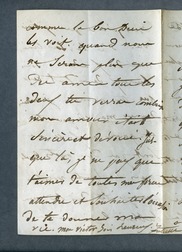 comme le bon Dieu
les voit. quand nous
ne serons plus que
des âmes tous les
deux tu verras combien
mon amour était
sincère et dévoué. Jus
que là, je ne puis que
t'aimer de toutes mes forces
attendre et souhaiter
de te donner ma
vie. mon Victor